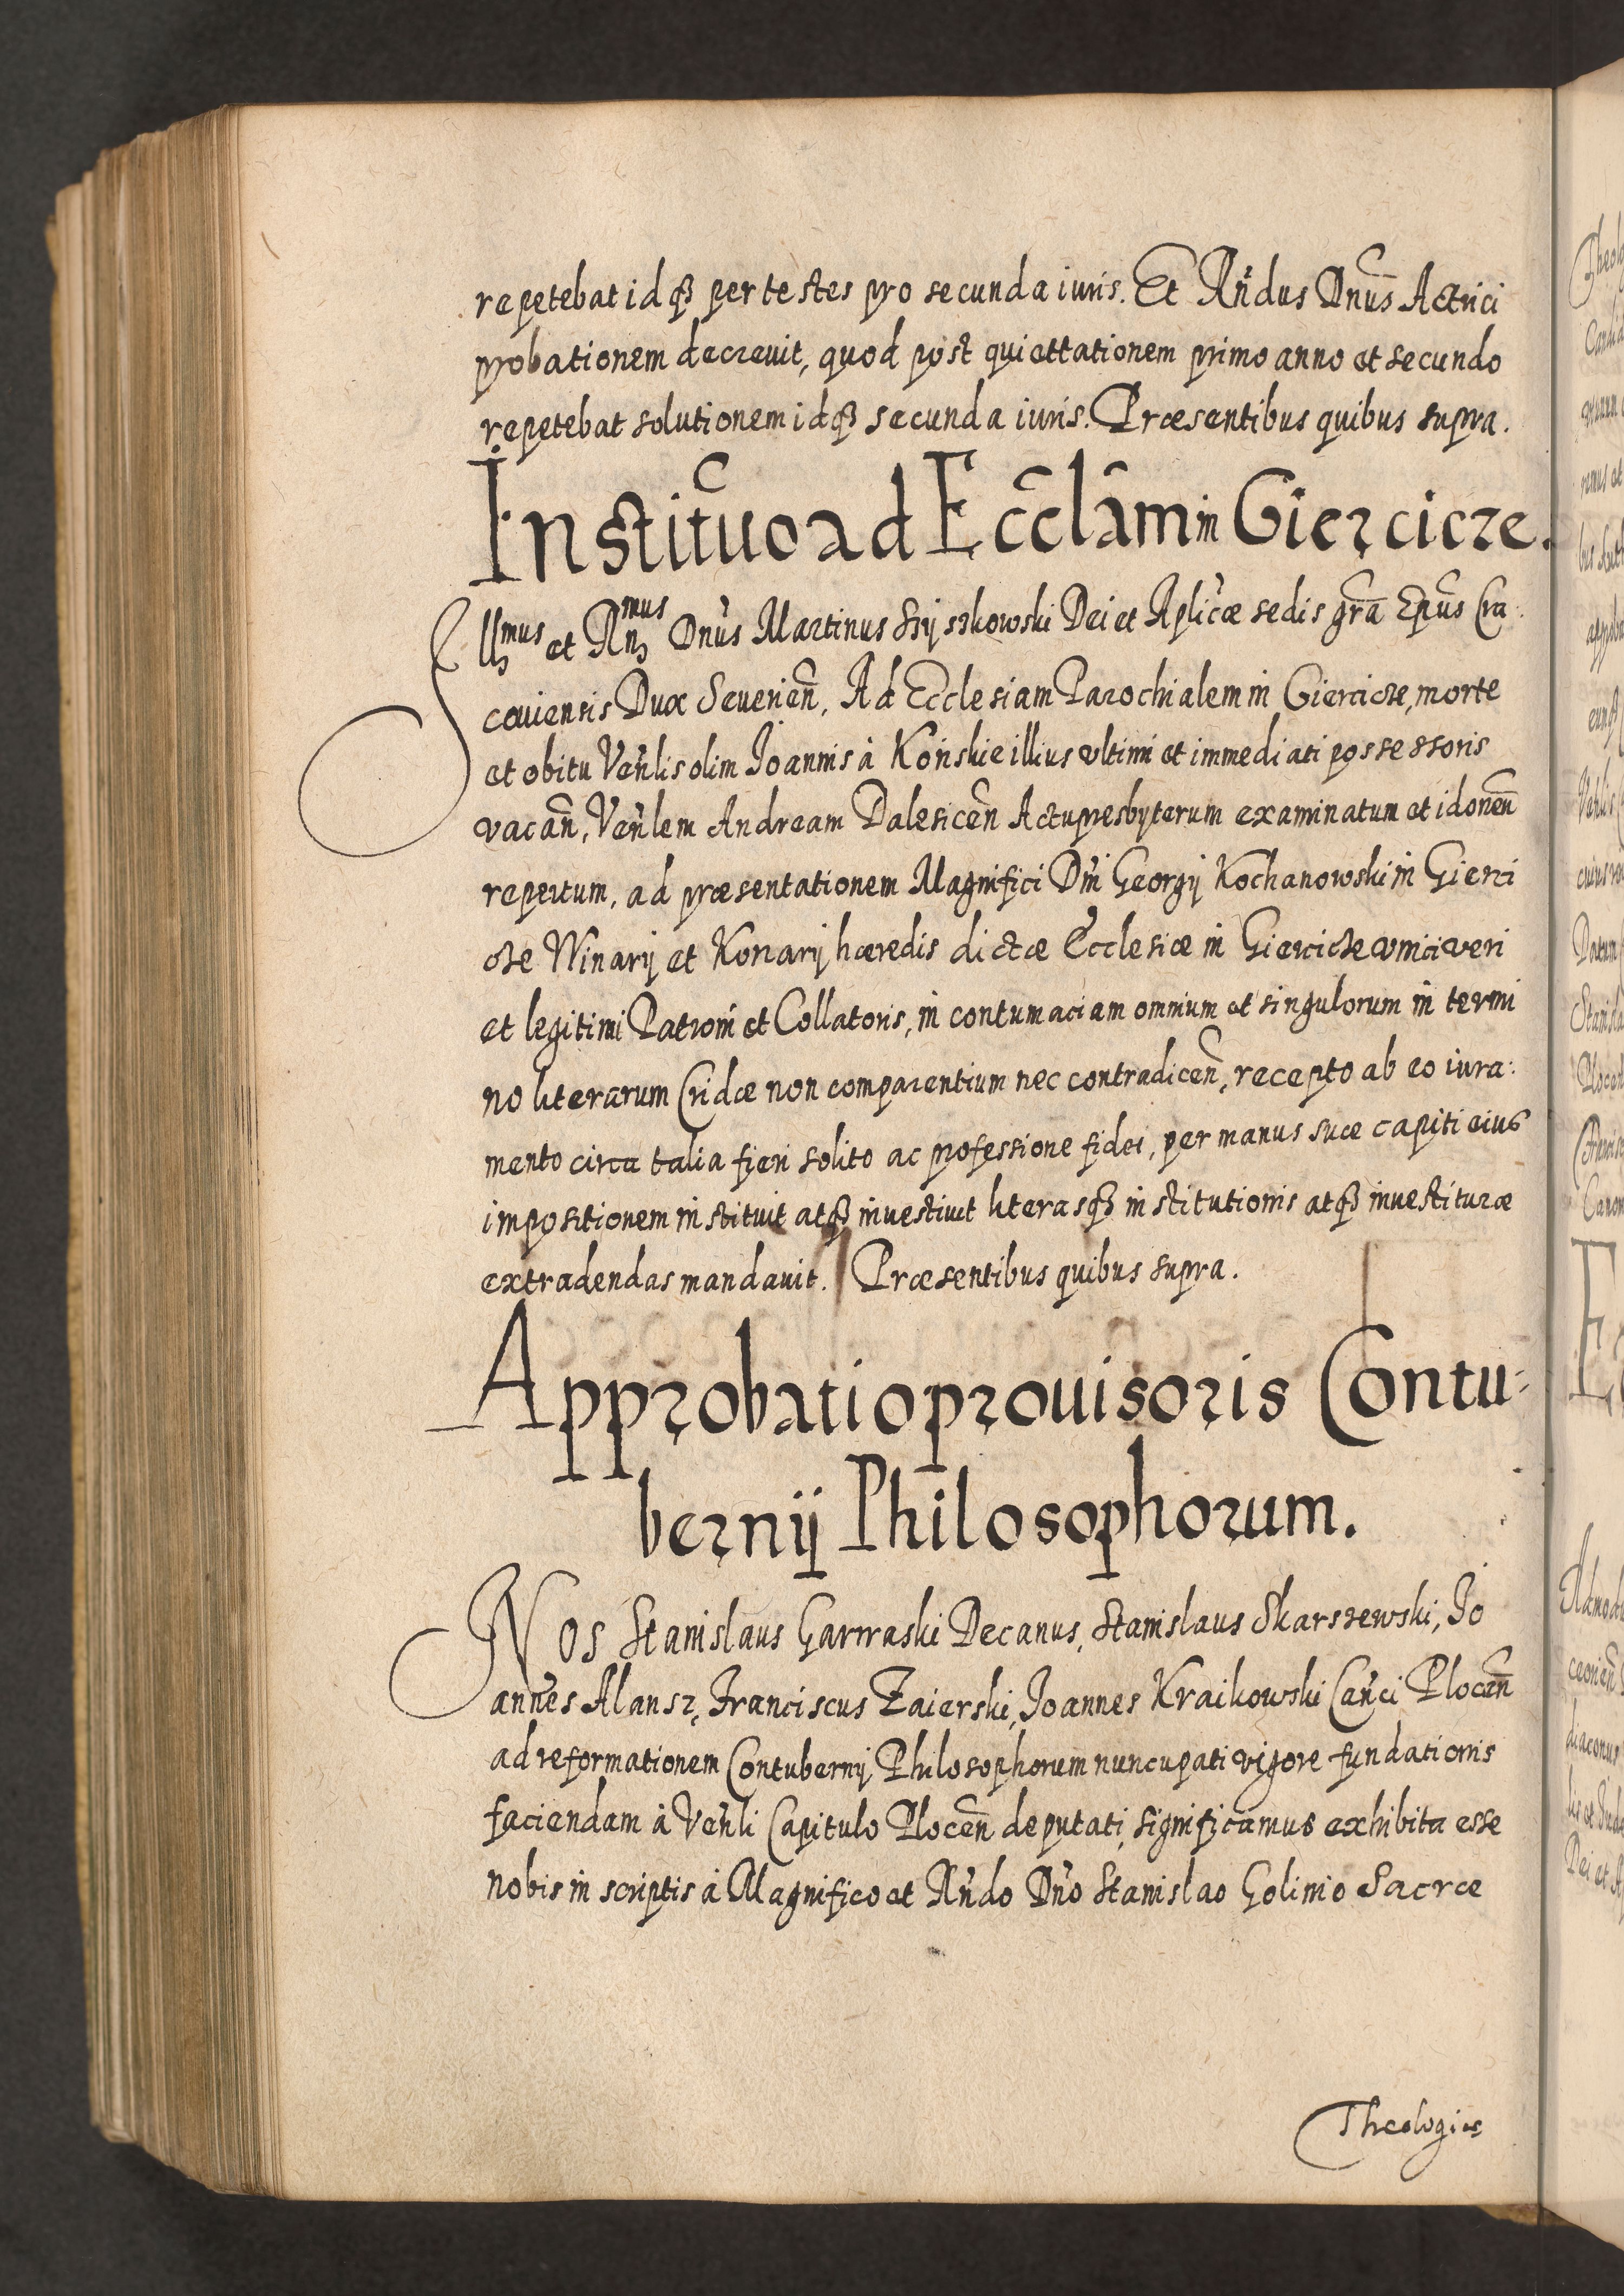 repetebat idq₃ per testes pro secunda iuris. Et Rñdus Dñus Actrici
probationem decreuit, quod post quiettationem primo anno et secundo
repetebat solutionem idq₃ secunda iuris. Præsentibus quibus supra.
Institũo ad Eccl̃am in Gierczicze.
Illmus et Rñmus Dñus Martinus Szyszkowski Dei et Aplicæ sedis gr̃a Ep̃us Cra:
couiensis Dux Seuerieñ, Ad Ecclesiam Parochialem in Gierczicze, morte
et obitu Veñlis olim Joannis à Końskie illius vltimi et immediati possessoris
vacañ, Veñlem Andream Dalesiceñ Actupresbyterum examinatum et idoneũ
repertum, ad præsentationem Magnifici Dñi Georgij Kochanowski in Gierczi
cze Winary et Konary hæredis dictæ Ecclesiæ in Gierczicze vnici veri
et legitimi Patroni et Collatoris, in contumaciam omnium et singulorum in termi
no literarum Cridæ non comparentium nec contradiceñ, recepto ab eo iura:
mento circa talia fieri solito ac professione fidei, per manus suæ capiti eius
impositionem instituit atq₃ inuestiuit literasq₃ institutionis atq₃ inuestituræ
extradendas mandauit. Præsentibus quibus supra.
Approbatio prouisoris Contu:
bernij Philosophorum.
Nos Stanislaus Garwaski Decanus, Stanislaus Skarszewski, Jo
annes Alansz, Franciscus Zaierski, Joannes Kraikowski Cañci Ploceñ
ad reformationem Contubernij Philosophorum nuncupati vigore fundationis
faciendam à Veñli Capitulo Ploceñ deputati, significamus exhibita esse
nobis in scriptis à Magnifico et Rñdo Dño Stanislao Golinio Sacræ
Theologiæ